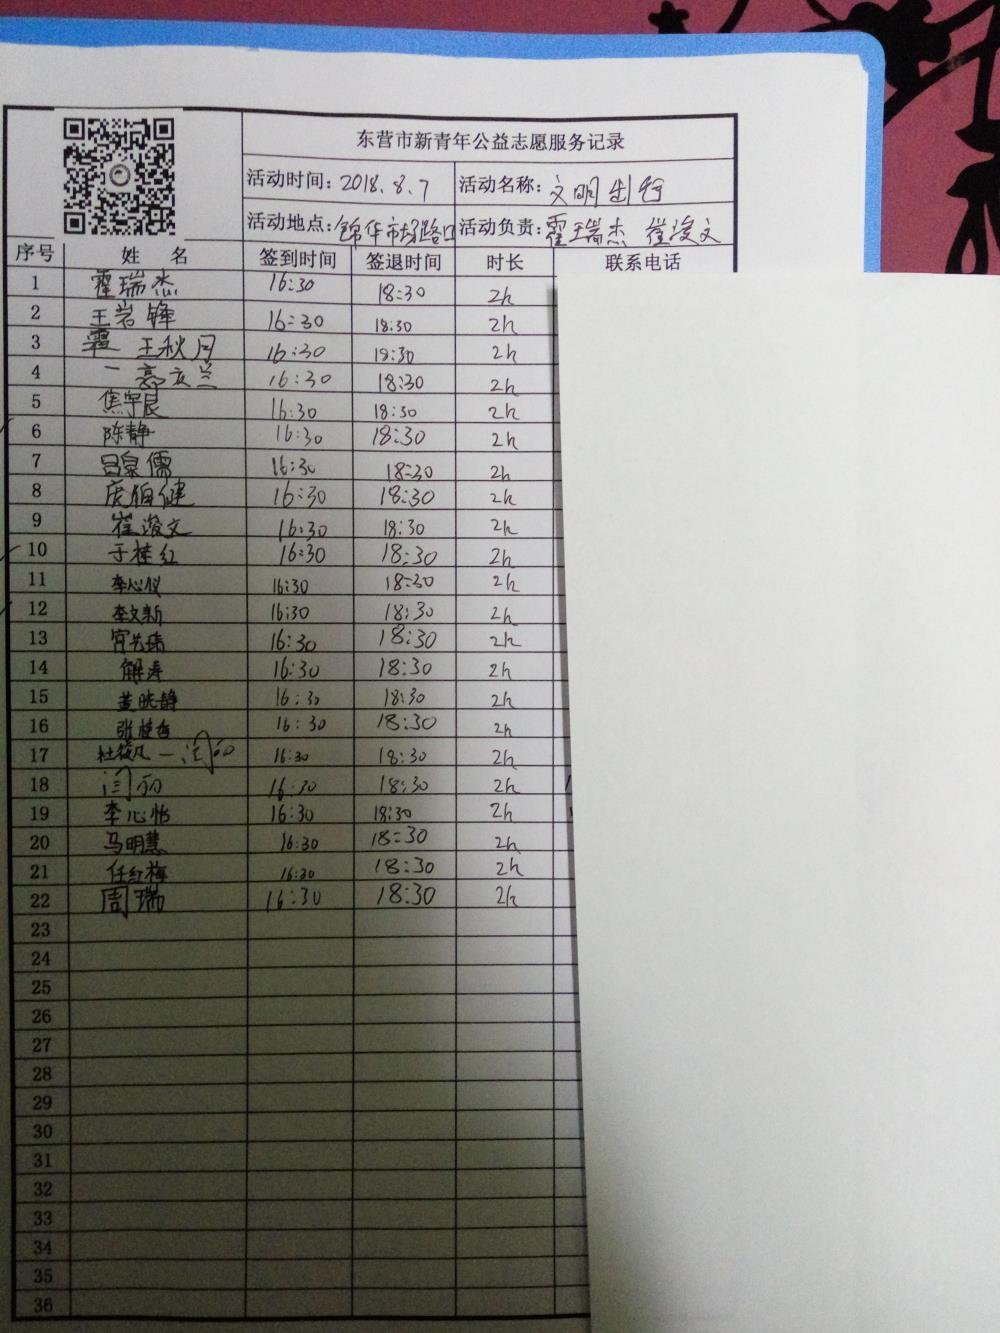 东营市新青年公益志愿服务记录
活动时间：2018.8.7 活动名称：文明出行
活动地点：锦华市场路口 活动负责：霍瑞杰 崔浚文
序号 姓 名 签到时间 签退时间 时长 联系电话
1 霍瑞杰 16:30 18:30 2h
2 王岩锋 16:30 18:30 2h
3 王秋月 16:30 18:30 2h
4 16:30 18:30 2h
5 焦宇晨 16:30 18:30 2h
6 陈静 16:30 18:30 2h
7 16:30 18:30 2h
8 16:30 18:30 2h
9 崔浚文 16:30 18:30 2h
10 于桂红 16:30 18:30 2h
11 李心仪 16:30 18:30 2h
12 李文新 16:30 18:30 2h
13 16:30 18:30 2h
14 解涛 16:30 18:30 2h
15 16:30 18:30 2h
16 16:30 18:30 2h
17 16:30 18:30 2h
18 闫丽 16:30 18:30 2h
19 李心怡 16:30 18:30 2h
20 马明慧 16:30 18:30 2h
21 任红梅 16:30 18:30 2h
22 周瑞 16:30 18:30 2h
23
24
25
26
27
28
29
30
31
32
33
34
35
36